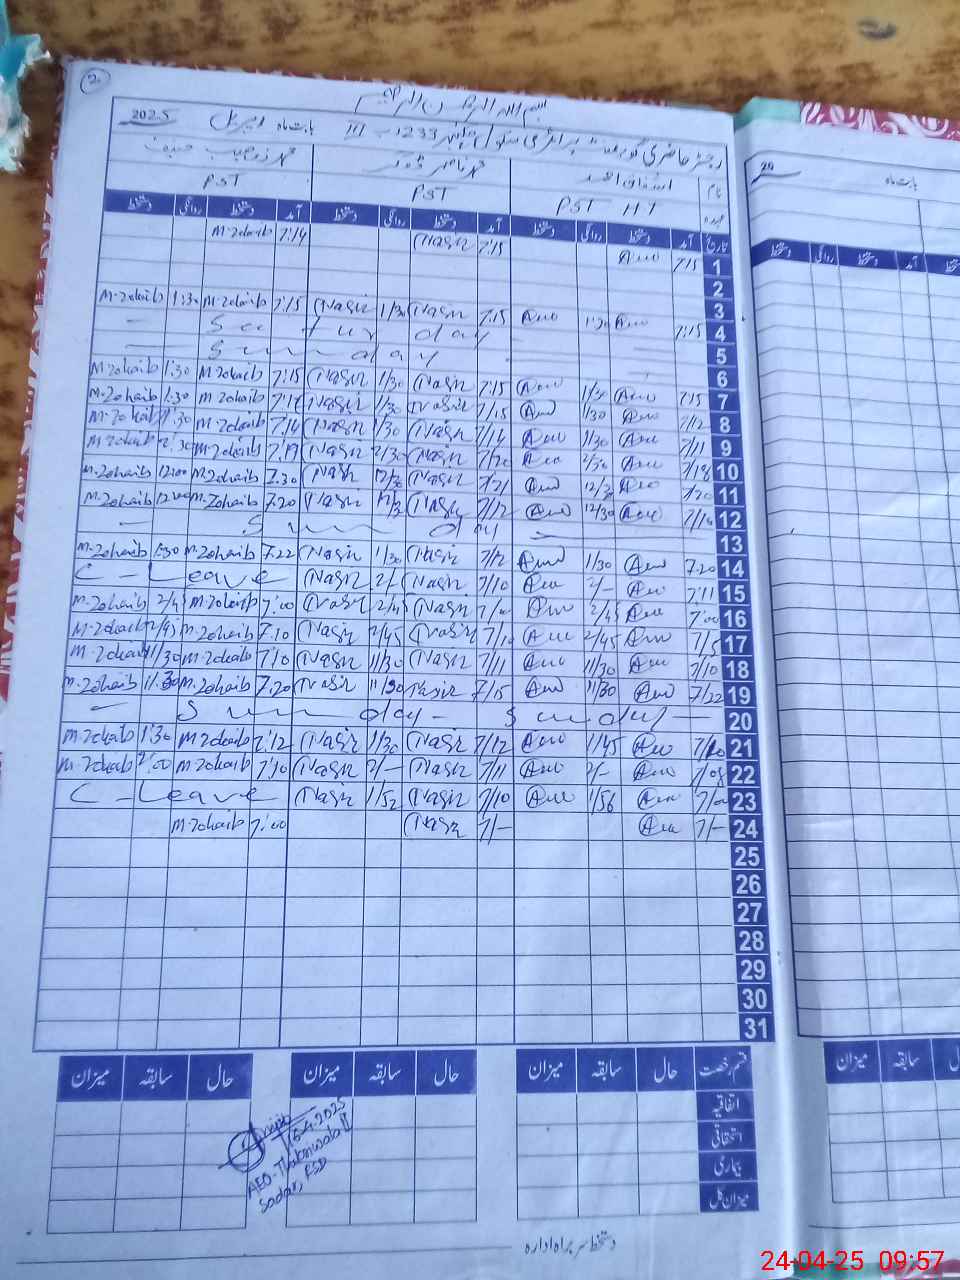 2
بسم اللہ الرحمن الرحیم
رجسٹر حاضری گورنمنٹ پرائمری سکول بابت ماہ اپریل 2025
نام اشفاق احمد محمد ناصر محمد زوہیب حنیف
عہدہ PST HT PST PST
تاریخ آمد دستخط روانگی دستخط آمد دستخط روانگی دستخط آمد دستخط روانگی دستخط
M.Zohaib 7:14 Nasir 7:15 7:15 1
2
M.Zohaib 1:30 M.Zohaib 7:15 Nasir 1/30 Nasir 7:15 1:30 7:15 3
Saturday 4
Sunday 5
6
M.Zohaib 1:30 M.Zohaib 7:15 Nasir 1/30 Nasir 7:15 1/30 7:15 7
M.Zohaib 1:30 M.Zohaib Nasir 1/30 Nasir 7/15 1/30 7/12 8
M.Zohaib 1:30 M.Zohaib 7:14 Nasir 1/30 Nasir 7/14 1/30 7/11 9
M.Zohaib 2:30 M.Zohaib 7:19 Nasir 2/30 Nasir 7/20 2/30 7/18 10
M.Zohaib 12:00 M.Zohaib 7.30 Nasir 12/30 Nasir 7/21 12/30 7/20 11
M.Zohaib 12:00 M.Zohaib 7.20 Nasir Nasir 7/12 12/30 7/10 12
Sunday 13
M.Zohaib 1:30 M.Zohaib 7.22 Nasir 1/30 Nasir 7/12 1/30 7.20 14
C-Leave Nasir 2/- Nasir 7/10 2/- 7:11 15
M.Zohaib 2/45 M.Zohaib 7:00 Nasir 2/45 Nasir 7/00 2/45 7:00 16
M.Zohaib 2/45 M.Zohaib 7.10 Nasir 2/45 Nasir 7/10 2/45 7/5 17
M.Zohaib 11/30 M.Zohaib 7:10 Nasir 11/30 Nasir 7/11 11/30 7/10 18
M.Zohaib 11.30 M.Zohaib 7.20 Nasir 11/30 Nasir 7/15 11/30 7/22 19
Sunday - Sunday 20
M.Zohaib 1:30 M.Zohaib 7:12 Nasir 1/30 Nasir 7/12 1/45 7/10 21
M.Zohaib 2:00 M.Zohaib 7:10 Nasir 2/- Nasir 7/11 2/- 7/08 22
C-Leave Nasir 1/52 Nasir 7/10 1/56 7/00 23
M.Zohaib 7:00 Nasir 7/- 7/- 24
25
26
27
28
29
30
31
قسم رخصت حال سابقہ میزان حال سابقہ میزان حال سابقہ میزان
اتفاقیہ
استحقاقی
بیماری
میزان کل
16-4-2025
AEO-Thikriwala II
Sadar, FSD
دستخط سربراہ ادارہ
20 بابت ماہ
دستخط روانگی دستخط آمد
حال سابقہ میزان
24-04-25 09:57